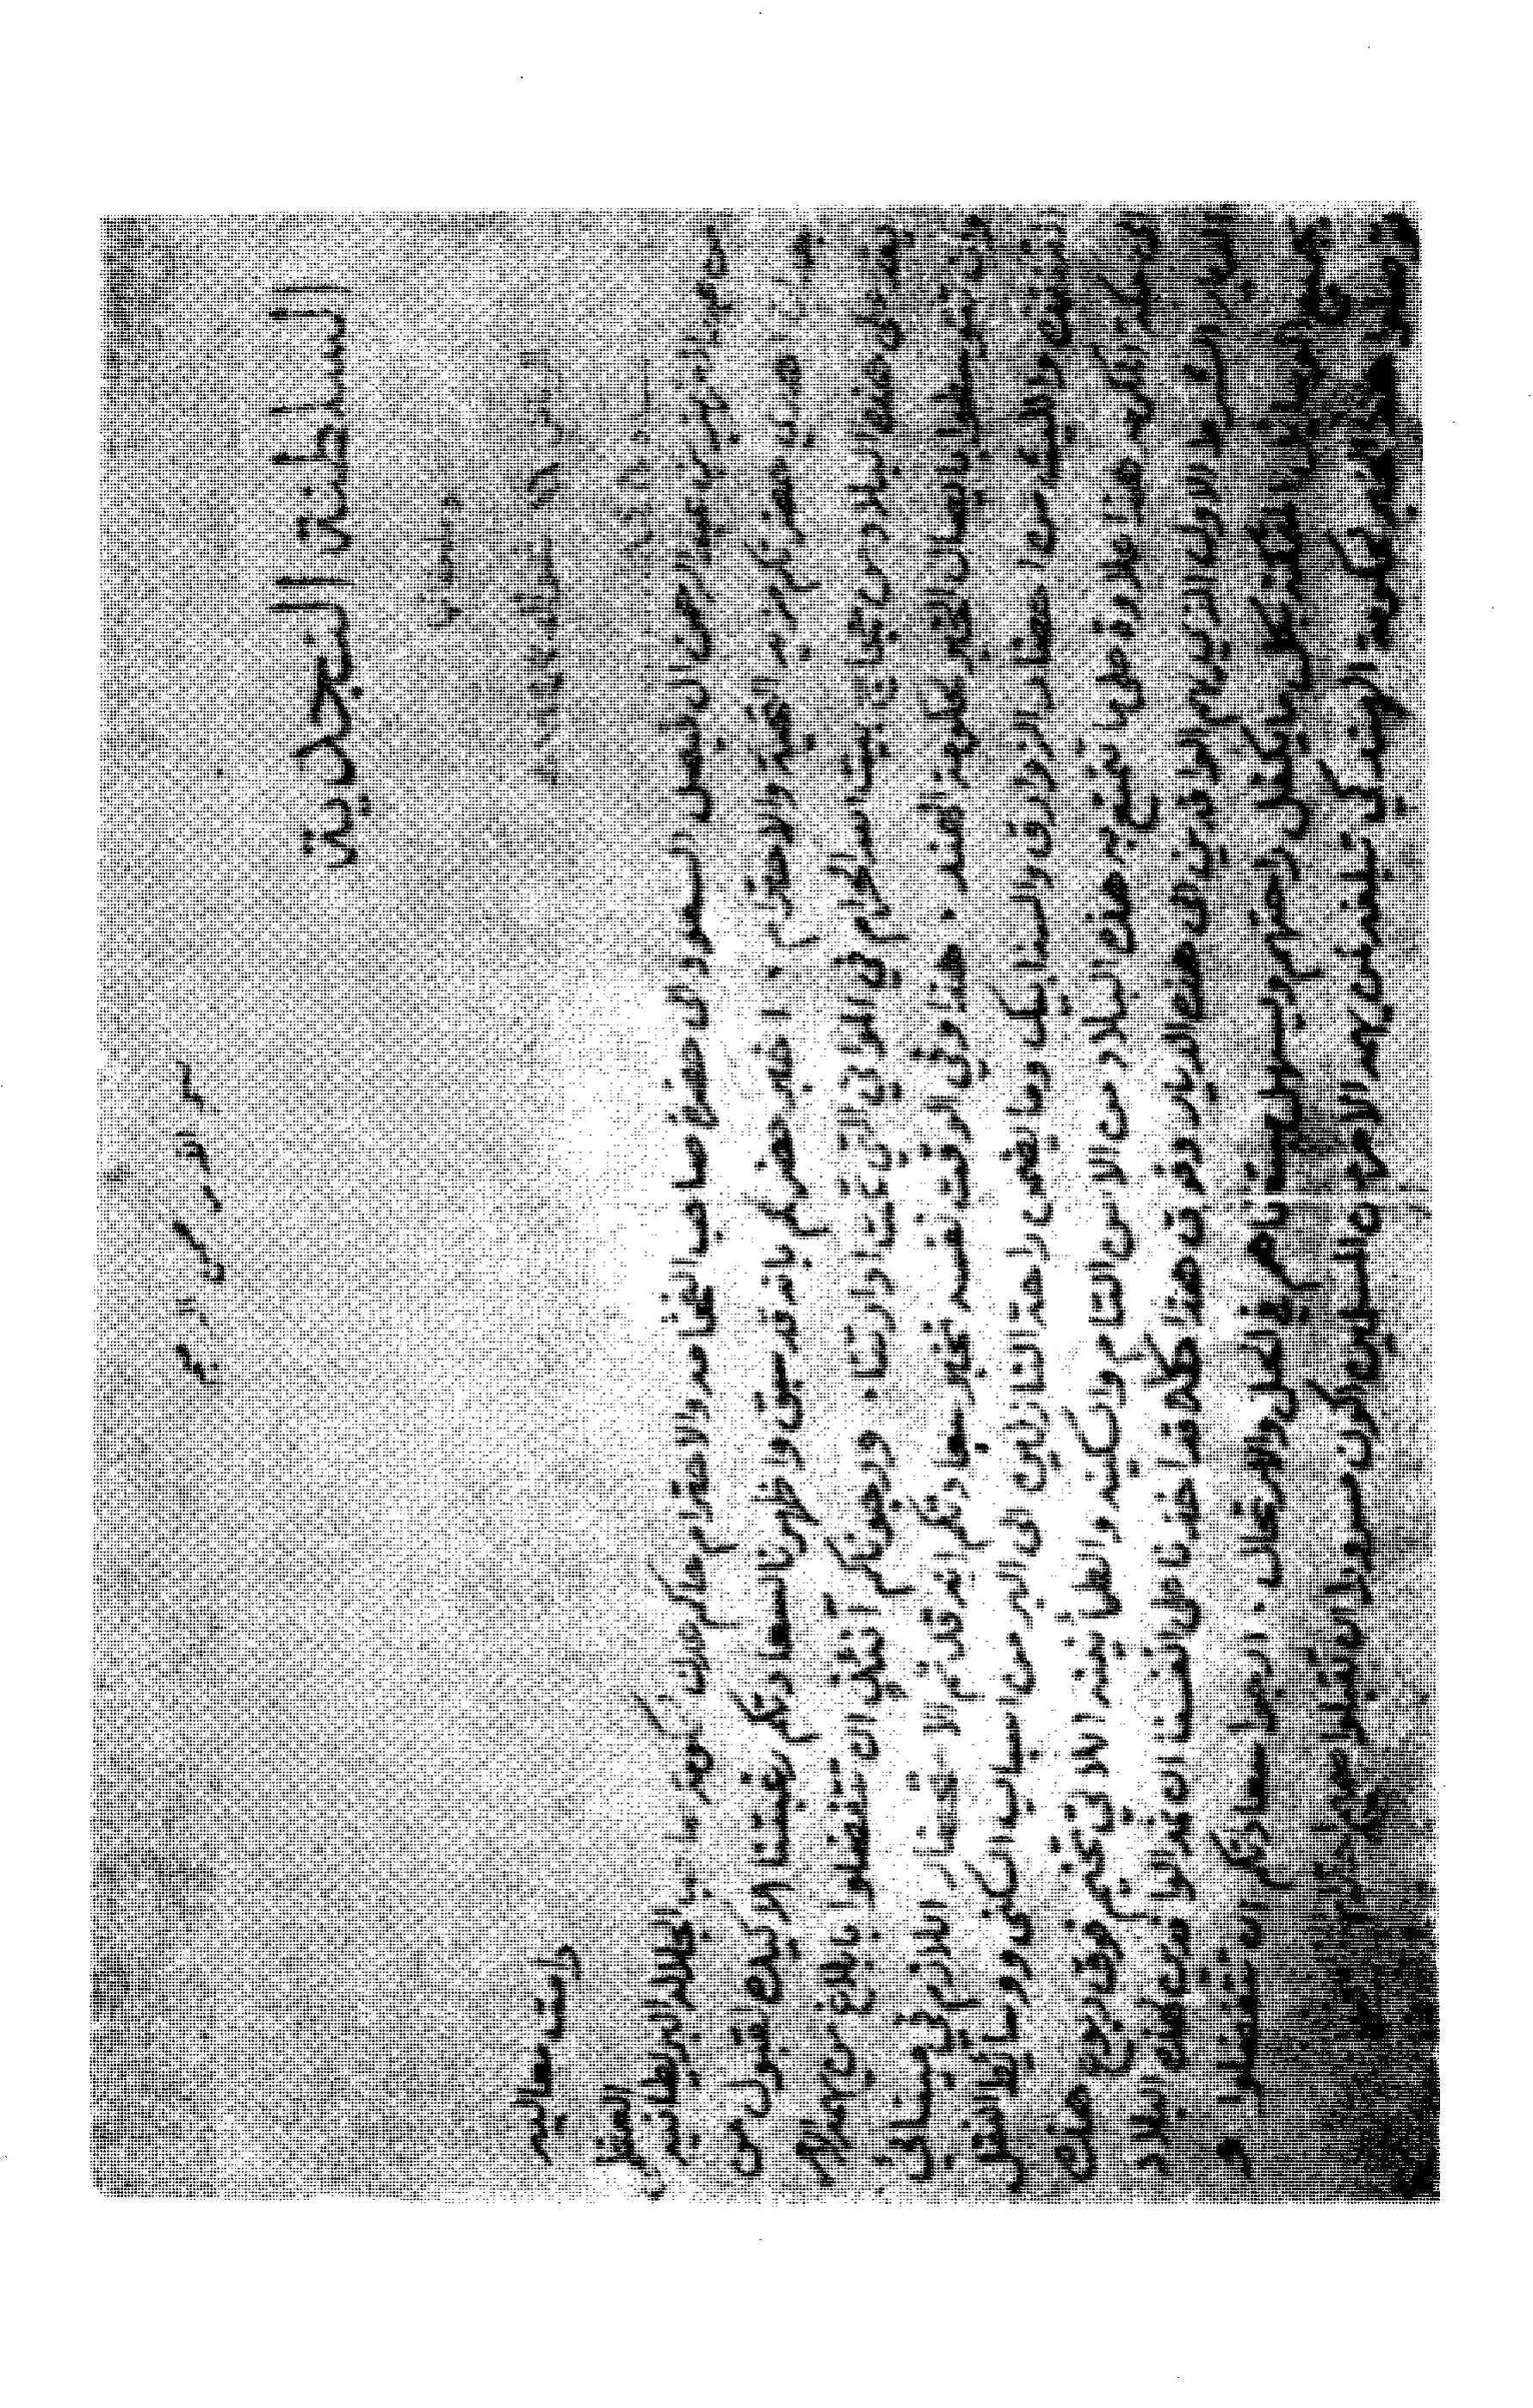 بسم الله الرحمن الرحيم
السلطنة النجدية
وملحقاتها
من عبد العزيز بن عبد الرحمن ال فيصل السعود الى حضرة صاحب الفخامه والاحترام حاكم عدن الجلاله البريطانيه المعظم دامت معاليه
بعد ان اهدي حضرتكم مزيد التحية والاحترام . اخبر حضرتكم بانه قد سبق واظهرنا لسعادتكم رغبتنا الاكيده لقبول من
يفد على هذه البلاد من حجاج بيت الله الحرام في المواني التي تحت ادارتنا. ورجوناكم آنئذ ان تتفضلوا بابلاغ من يهمه الامر
وان تتوسطوا بايصال الخبر لحكومة الهند . هذا وفي الوقت نفسه نخبر سعادتكم انه قد تم الاستحضار اللازم في مينائي
القنفذه والليث من احضار الزوارق والسنابيك وما يضمن راحة النازلين الى البر من اسباب السكنى ووسائط النقل
الى مكة المكرمه هذا علاوة على ما تتمتع به هذه البلاد من الامن التام والسكينه والطمأنينه اللاتي تخيم فوق ربوع هذه
الاول الذي يهم الوافدين الى هذه الديار وفوق هذا كله فقد اخذنا على انفسنا ان هذه البلاد
الممكنة بكل ما يكفل راحتهم ويسهل في الحل والارتحال . ارجو سعادتكم ان تتفضلوا و
هذا الخبر لحكومة الهند كي يهمه الامر من المسلمين اكون مسرورا ان تقبلوا